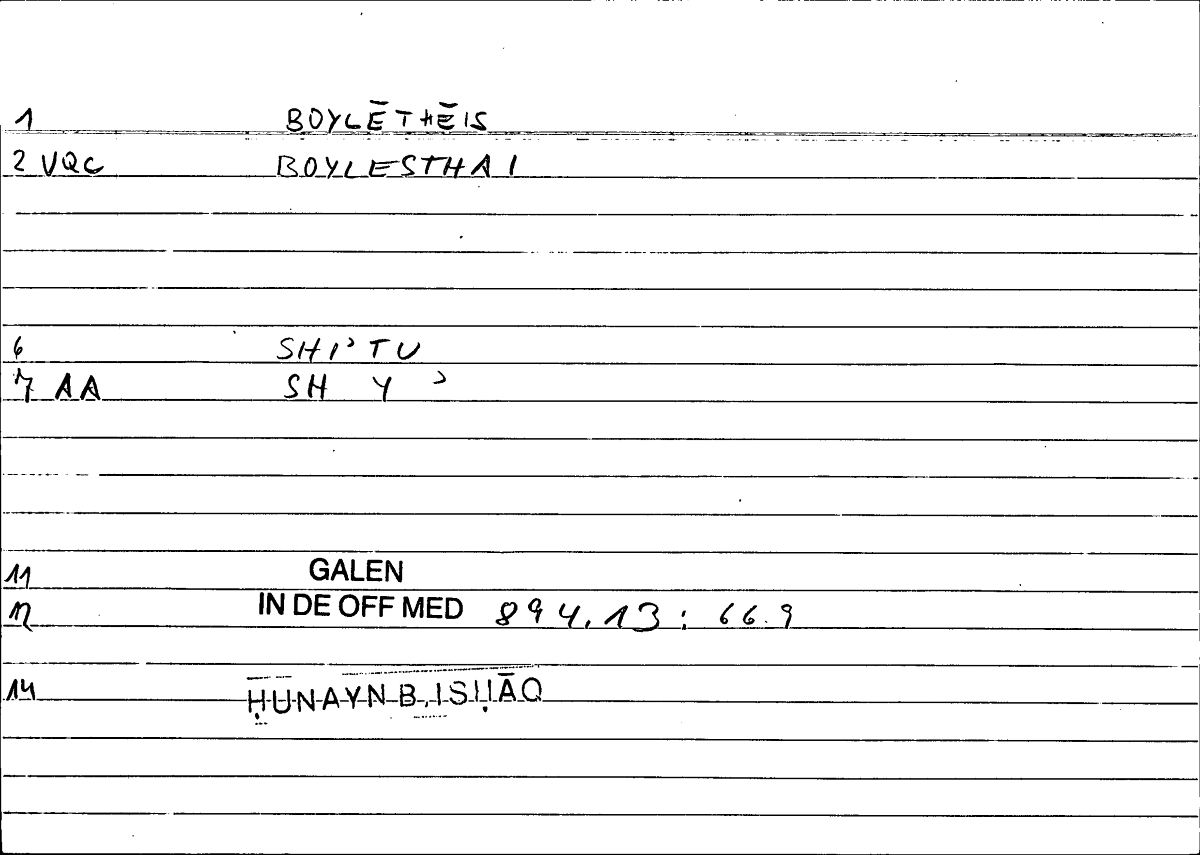 1 BOYLĒTHĒIS
2 VQC BOYLESTHAI
6 SHIʾTU
7 AA SH Y ʾ
11 GALEN
12 IN DE OFF MED 894.13 : 66.9
14 ḤUNAYN B. ISḤĀQ